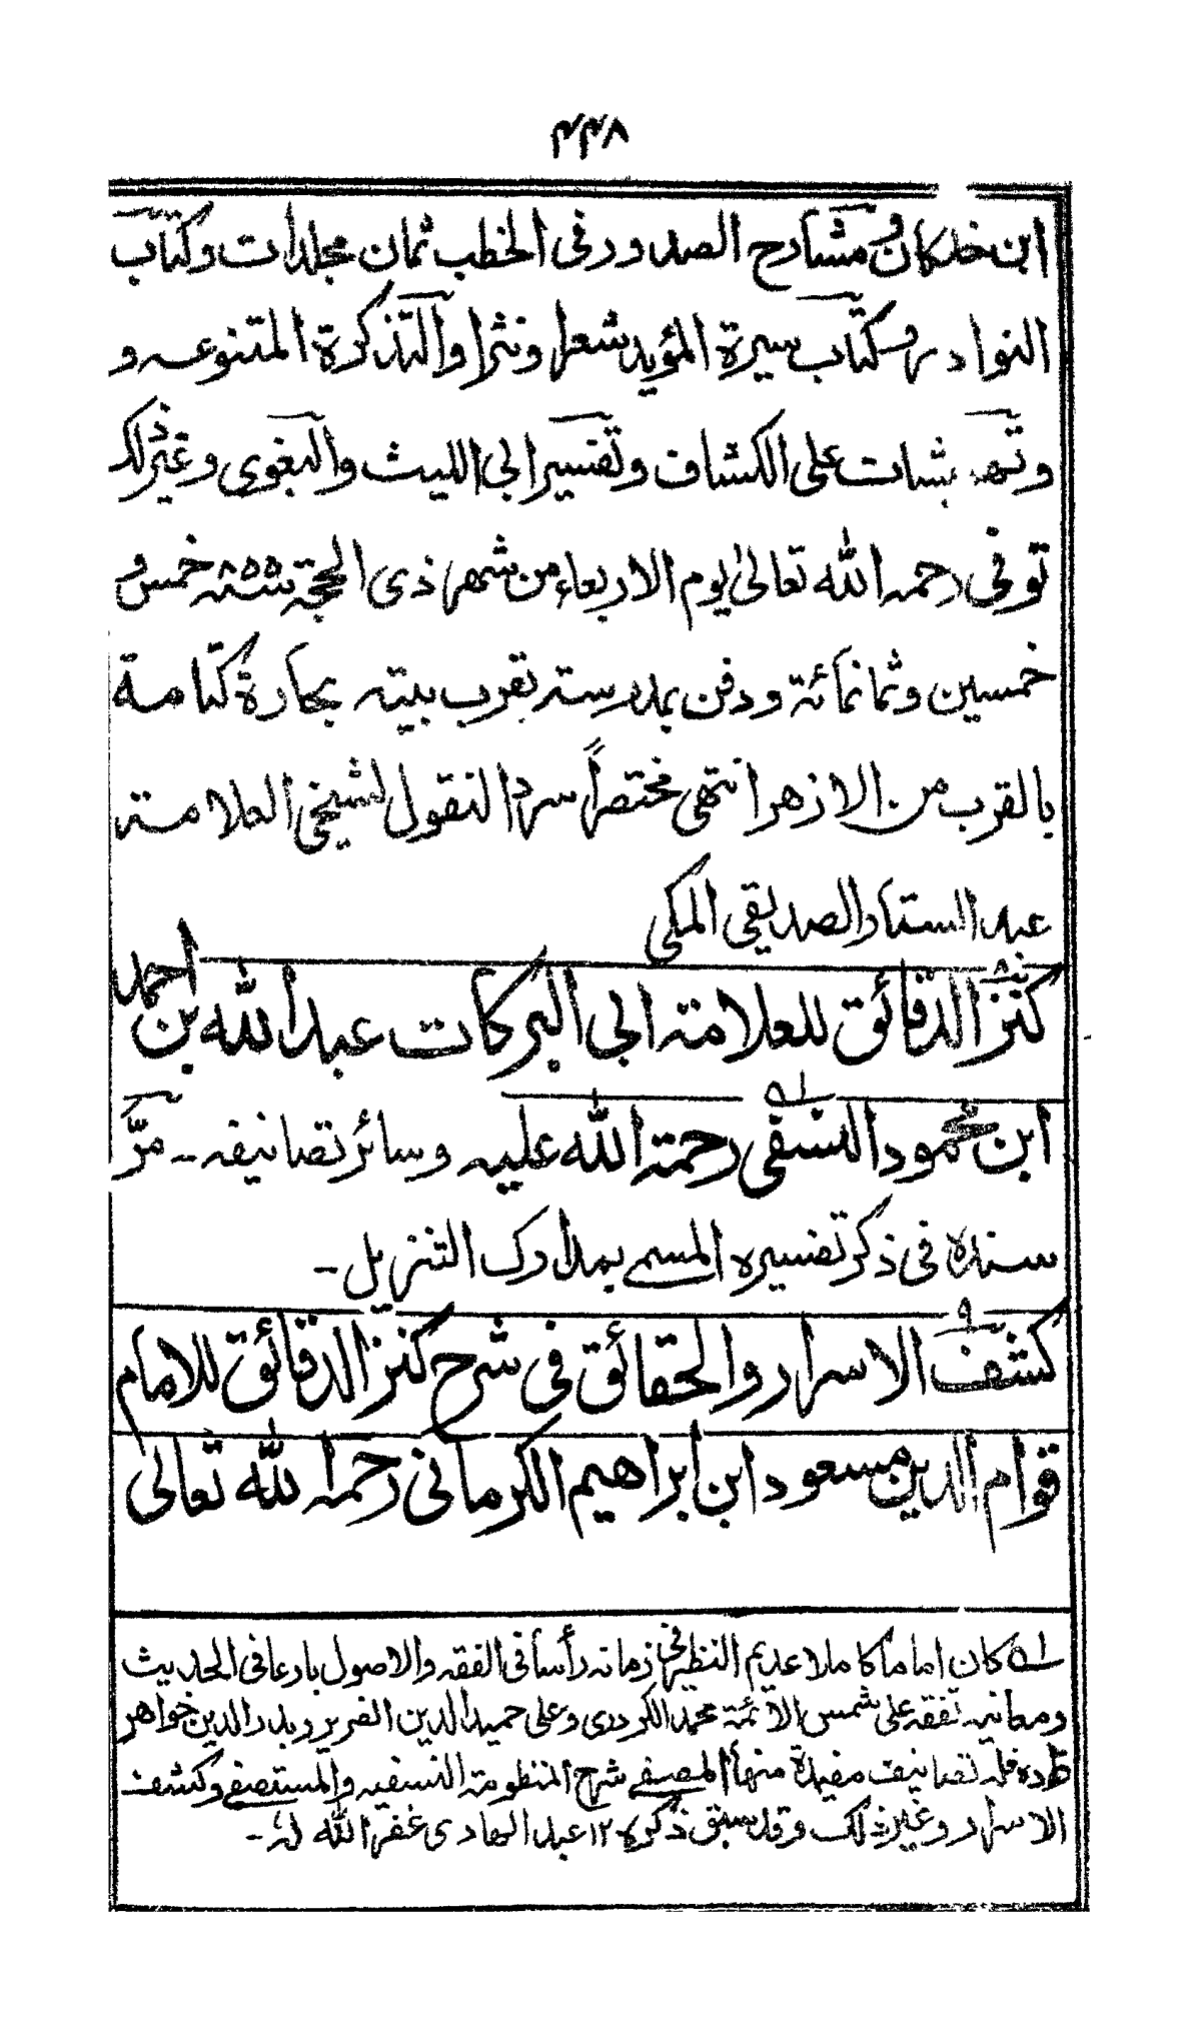 ۴۴۸
ابن خلكان ومشارح الصدور فى الخطب ثمان مجلدات وكتاب
النوادر وكتاب سيرة المؤيد شعرا ونثرا والتذكرة المتنوعه و
وتحويشات على الكشاف وتفسير ابى الليث والبغوى وغير ذلك
توفى رحمه الله تعالى يوم الاربعاء من شهر ذى الحجة سنة ٨٥٥ خمس و
خمسين وثمانمائة ودفن بمدرسته بقرب بيته بحارة كتامة
بالقرب من الازهر انتهى مختصراً سرد النقول لشيخى العلامة
عبد الستار الصديقى المكى
كنز الدقائق للعلامة ابى البركات عبد الله بن احمد
ابن محمود النسفى رحمة الله عليه وسائر تصانيفه ـ مرّ
سنده فى ذكر تفسيره المسمى بمدارك التنزيل ـ
كشف الاسرار والحقائق فى شرح كنز الدقائق للامام
قوام الدين مسعود ابن ابراهيم الكرمانى رحمه الله تعالى
لہ كان اماما كاملا عديم النظير فى زمانه رأسا فى الفقه والاصول بارعا فى الحديث
ومعانيه تفقه على شمس الائمة محمد الكردرى وعلى حميد الدين الضرير وبدر الدين خواهر
زاده فله تصانيف مفيدة منها المصفى شرح المنظومة النسفيه والمستصفى وكشف
الاسرار وغير ذلك وقد سبق ذكره ١٢ عبد الهادى غفر الله له ـ